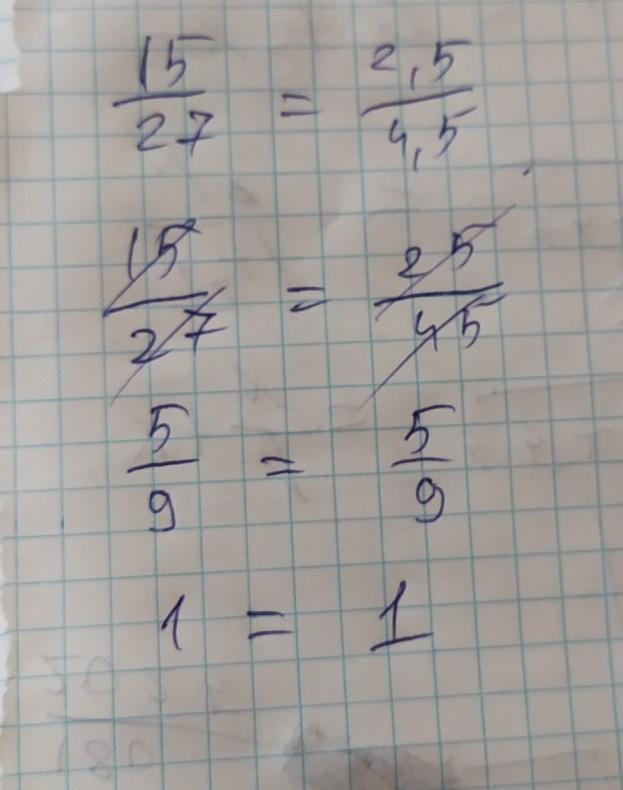 15/27 = 2,5/4,5
15/27 = 25/45
5/9 = 5/9
1 = 1